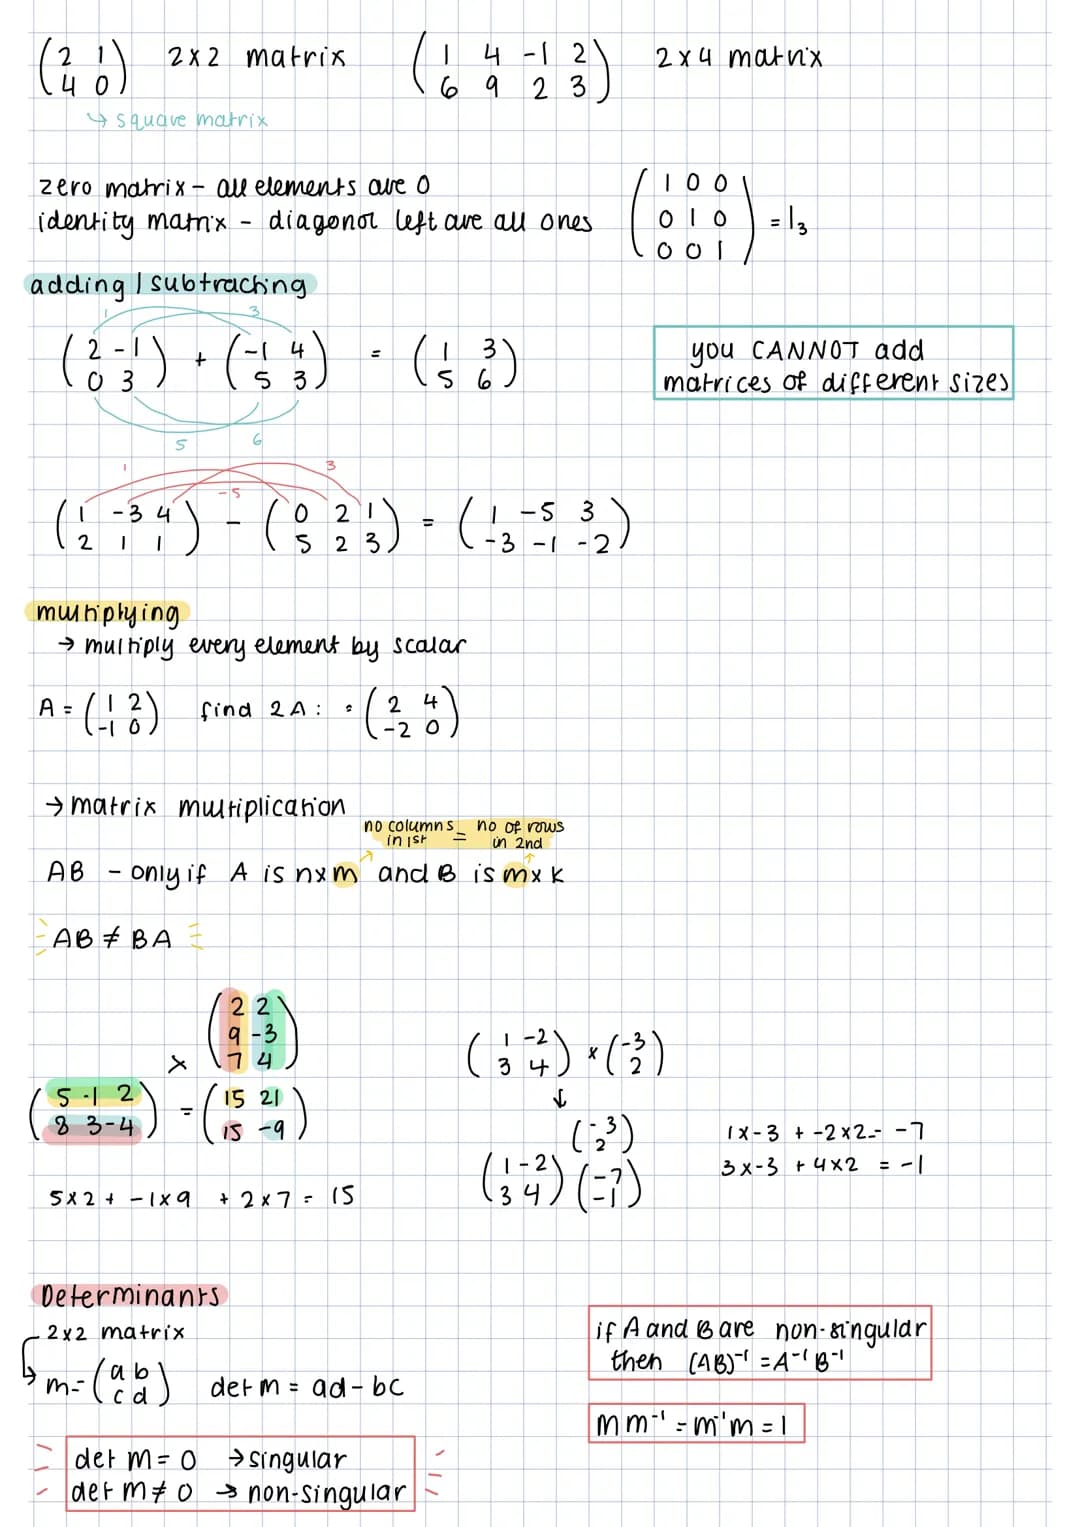 (2 1 / 4 0) 2x2 matrix (1 4 -1 2 / 6 9 2 3) 2x4 matrix
↳ square matrix
zero matrix - all elements are 0
identity matrix - diagonal left are all ones (1 0 0 / 0 1 0 / 0 0 1) = I₃
adding / subtracting
1 3
(2 -1 / 0 3) + (-1 4 / 5 3) = (1 3 / 5 6)
5 6
you CANNOT add
matrices of different sizes
1 -5 3
(1 -3 4 / 2 1 1) - (0 2 1 / 5 2 3) = (1 -5 3 / -3 -1 -2)
multiplying
→ multiply every element by scalar
A = (1 2 / -1 0) find 2A: = (2 4 / -2 0)
→ matrix multiplication
no columns in 1st = no of rows in 2nd
AB - only if A is nxm and B is mxk
AB ≠ BA
(5 -1 2 / 8 3 -4) × (2 2 / 9 -3 / 7 4) = (15 21 / 15 -9)
5x2 + -1x9 + 2x7 = 15
(1 -2 / 3 4) × (-3 / 2)
↓
(-3 / 2)
(1 -2 / 3 4) (-7 / -1)
1x-3 + -2x2 = -7
3x-3 + 4x2 = -1
Determinants
2x2 matrix
m = (a b / c d) det m = ad - bc
det m = 0 → singular
det m ≠ 0 → non-singular
if A and B are non-singular
then (AB)⁻¹ = A⁻¹B⁻¹
mm⁻¹ = m⁻¹m = I